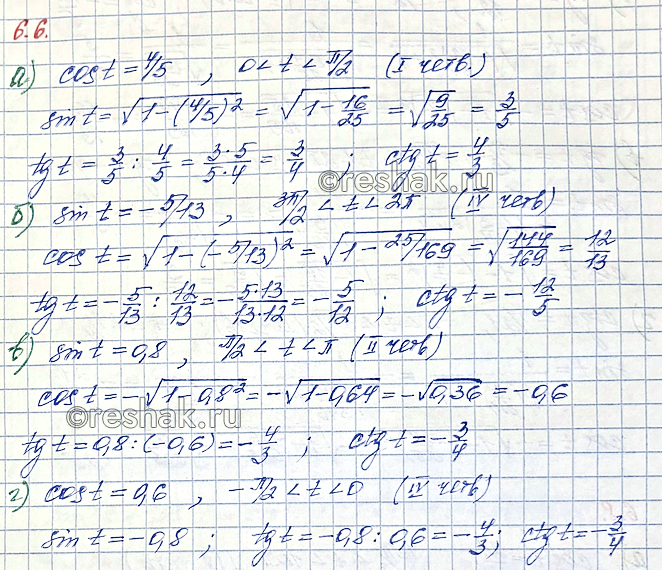 6.6.
а) cos t = 4/5 , 0 < t < π/2 (I четв.)
sin t = √(1-(4/5)²) = √(1-16/25) = √(9/25) = 3/5
tg t = 3/5 : 4/5 = 3·5/5·4 = 3/4 ; ctg t = 4/3
©reshak.ru
б) sin t = -5/13 , 3π/2 < t < 2π (IV четв)
cos t = √(1-(-5/13)²) = √(1-25/169) = √(144/169) = 12/13
tg t = -5/13 : 12/13 = -5·13/13·12 = -5/12 ; ctg t = -12/5
в) sin t = 0,8 , π/2 < t < π (II четв)
cos t = -√(1-0,8²) = -√(1-0,64) = -√0,36 = -0,6
©reshak.ru
tg t = 0,8 : (-0,6) = -4/3 ; ctg t = -3/4
г) cos t = 0,6 , -π/2 < t < 0 (IV четв)
sin t = -0,8 ; tg t = -0,8 : 0,6 = -4/3 ; ctg t = -3/4